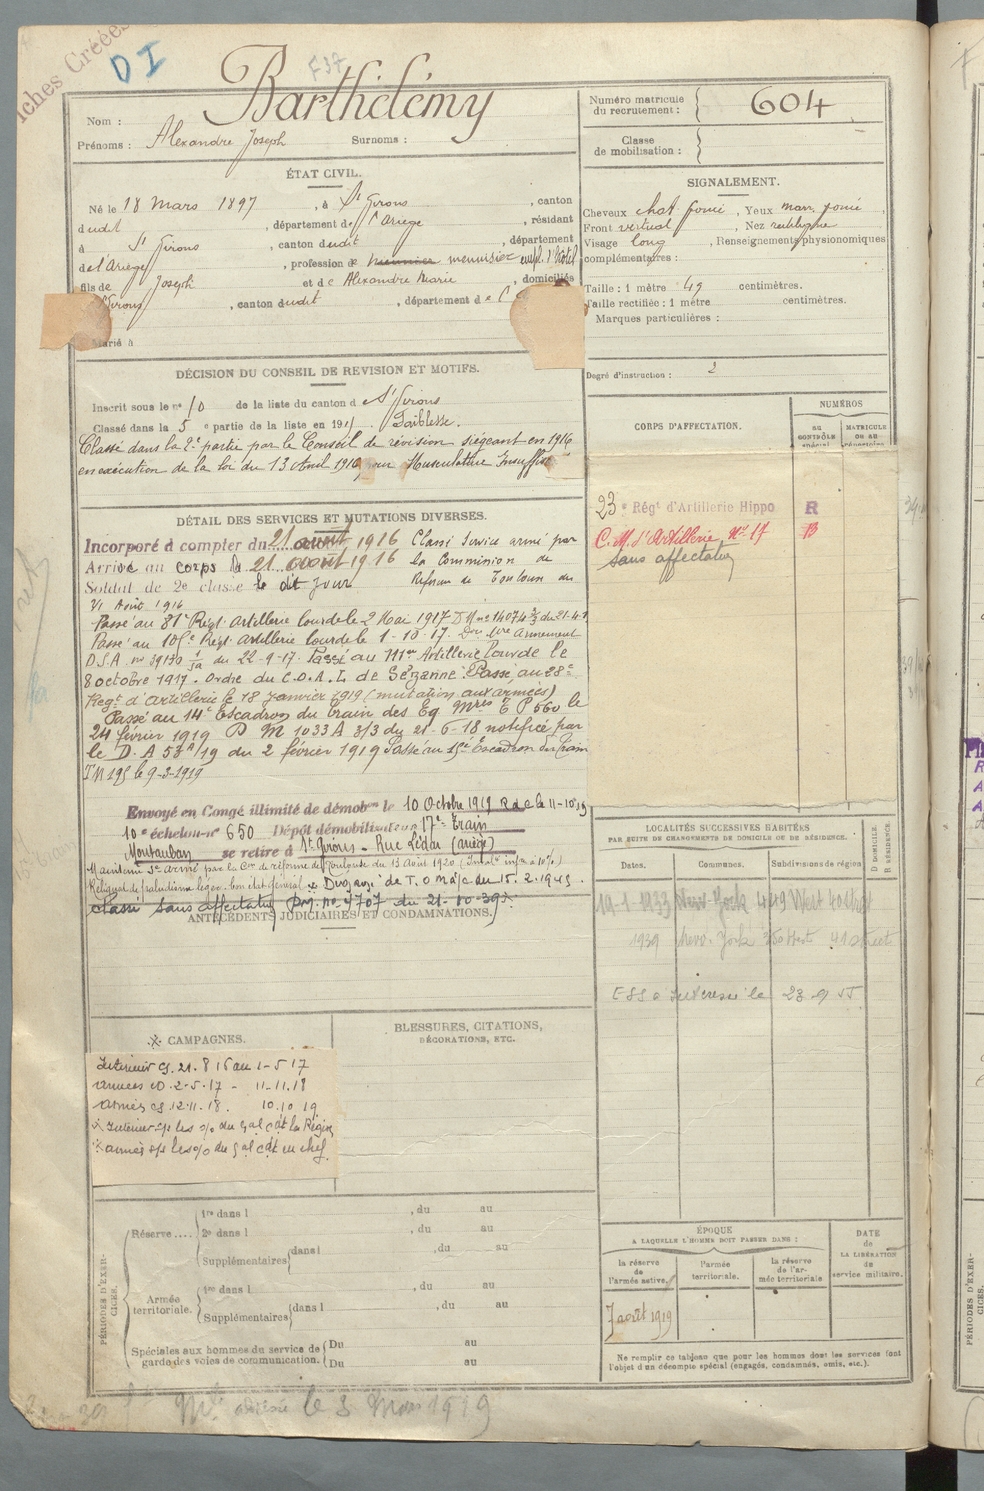 iches Créées
D I
F37
Nom : Barthélémy
Prénoms : Alexandre Joseph Surnoms :
Numéro matricule du recrutement : 604
Classe de mobilisation :
ÉTAT CIVIL.
Né le 18 mars 1897, à St Girons, canton
dudit, département de l'Ariège, résidant
à St Girons, canton dudit, département
de l'Ariège, profession de menuisier empl. d'hôtel
fils de Joseph et de Alexandre Marie, domiciliés
Girons, canton dudit, département de
Marié à
SIGNALEMENT.
Cheveux chat foncé, Yeux marr. foncé,
Front vertical, Nez rectiligne
Visage long, Renseignements physionomiques
complémentaires :
Taille : 1 mètre 49 centimètres.
Taille rectifiée : 1 mètre centimètres.
Marques particulières :
Degré d'instruction : 2
DÉCISION DU CONSEIL DE REVISION ET MOTIFS.
Inscrit sous le n° 10 de la liste du canton de St Girons
Classé dans la 5e partie de la liste en 191 Faiblesse.
Classé dans la 2e partie par le Conseil de révision siégeant en 1916
en exécution de la loi du 13 Avril 1916 pour Musculature Insuffis
CORPS D'AFFECTATION.
NUMÉROS
au CONTRÔLE spécial
MATRICULE ou au répertoire
23e Régt d'Artillerie Hippo R
C.M. d'Artillerie No 17 B
sans affectation
DÉTAIL DES SERVICES ET MUTATIONS DIVERSES.
Incorporé à compter du 21 août 1916 Classé Service armé par
Arrivé au corps le 21 août 1916 la Commission de
Soldat de 2e classe le dit jour Réforme de Toulouse du
VI Août 1916
Passé au 81e Régt Artillerie lourde le 2 Mai 1917 DM no 14074 3/3 du 21-4-1
Passé au 105e Régt Artillerie lourde le 1-10-17. armement
D.S.A. no 39170 du 22-9-17. Passé au 111e Artillerie lourde le
8 octobre 1917. Ordre du C.O.A.L de Sézanne. Passé au 28e
Regt d'artillerie le 18 janvier 1919 (mutation aux armées)
Passé au 14e Escadron du train des Eq Mres E P 560 le
24 février 1919 D M 1033 A 3/3 du 21-6-18 notifiée par
le D.A 53 A/19 du 2 février 1919 Passé au 15e Escadron du Train
le 9-3-1919
Envoyé en Congé illimité de démobon le 10 Octobre 1919 R d c le 11-10-19
10e échelon no 650 Dépôt démobilisateur 17e Train
Montauban se retire à St Girons - Rue Lédar (Ariège)
Maintenu Sce Armé par la Con de réforme de Toulouse du 13 Août 1920 (Invalté infre à 10%)
Reliquat de paludisme léger. bon état général
du 15.2.1943.
classé sans affectation
du 21-10-39
ANTÉCÉDENTS JUDICIAIRES ET CONDAMNATIONS.
LOCALITÉS SUCCESSIVES HABITÉES
PAR SUITE DE CHANGEMENTS DE DOMICILE OU DE RÉSIDENCE.
Dates. Communes. Subdivisions de région
D DOMICILE. R RÉSIDENCE.
19-1-1933 New-York 449 West 40 Street
1939 New-York West 41 Street
le 23-9-55
CAMPAGNES.
Intérieur cs. 21.8.16 au 1-5-17
armées cd. 2-5-17 - 11-11-18
armées cs. 12-11-18. 10.10.19
BLESSURES, CITATIONS,
DÉCORATIONS, ETC.
PÉRIODES D'EXERCICES.
Réserve .... 1re dans l , du au
2e dans l , du au
Supplémentaires dans l , du au
Armée territoriale. 1re dans l , du au
Supplémentaires dans l , du au
Spéciales aux hommes du service de garde des voies de communication. Du au
Du au
ÉPOQUE
A LAQUELLE L'HOMME DOIT PASSER DANS :
la réserve de l'armée active.
l'armée territoriale.
la réserve de l'armée territoriale
DATE de LA LIBÉRATION du service militaire.
7 août 1919
Ne remplir ce tableau que pour les hommes dont les services font
l'objet d'un décompte spécial (engagés, condamnés, omis, etc.).
le 3 Mars 1919